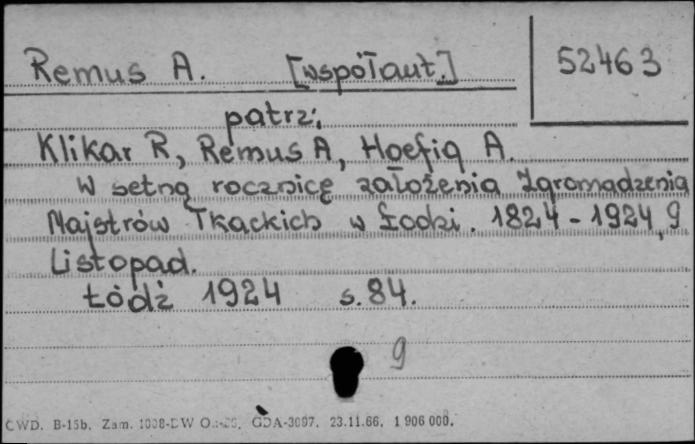 Remus A. [współaut.] 52463
patrz:
Klikar R, Remus A, Hoefig A.
W setną rocznicę założenia Zgromadzenia
Majstrów Tkackich w Łodzi. 1824-1924, 9
Listopad.
Łódź 1924 s. 84.
9
CWD. B-15b. Zam. GDA-3097. 23.11.66. 1 906 000.